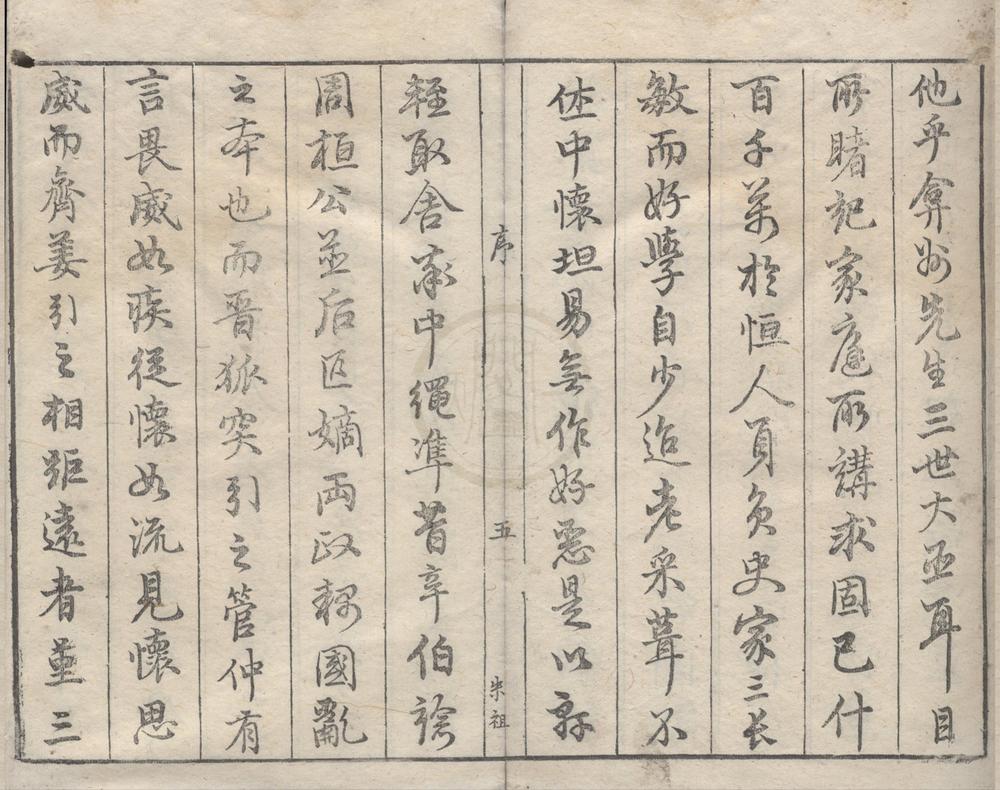 他乎弇州先生三世大丞耳目
所睹記家庭所講求固已什
百千萬於恒人員負史家三长
敏而好學自少迨老采葺不
休中懷坦易無作好惡是以辭
序
五
朱祖
輕取舍率中繩準昔辛伯諗
周桓公並后匹嫡兩政耦國亂
之本也而晉狐突引之管仲有
言畏威如疾從懷如流見懷思
威而齊姜引之相距遠者堇三